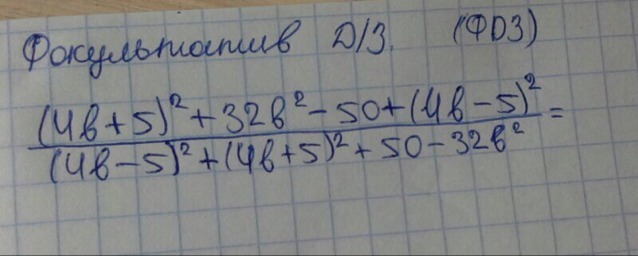 Факультатив Д/З. (ФДЗ)
(4b+5)²+32b²-50+(4b-5)²
(4b-5)²+(4b+5)²+50-32b² =